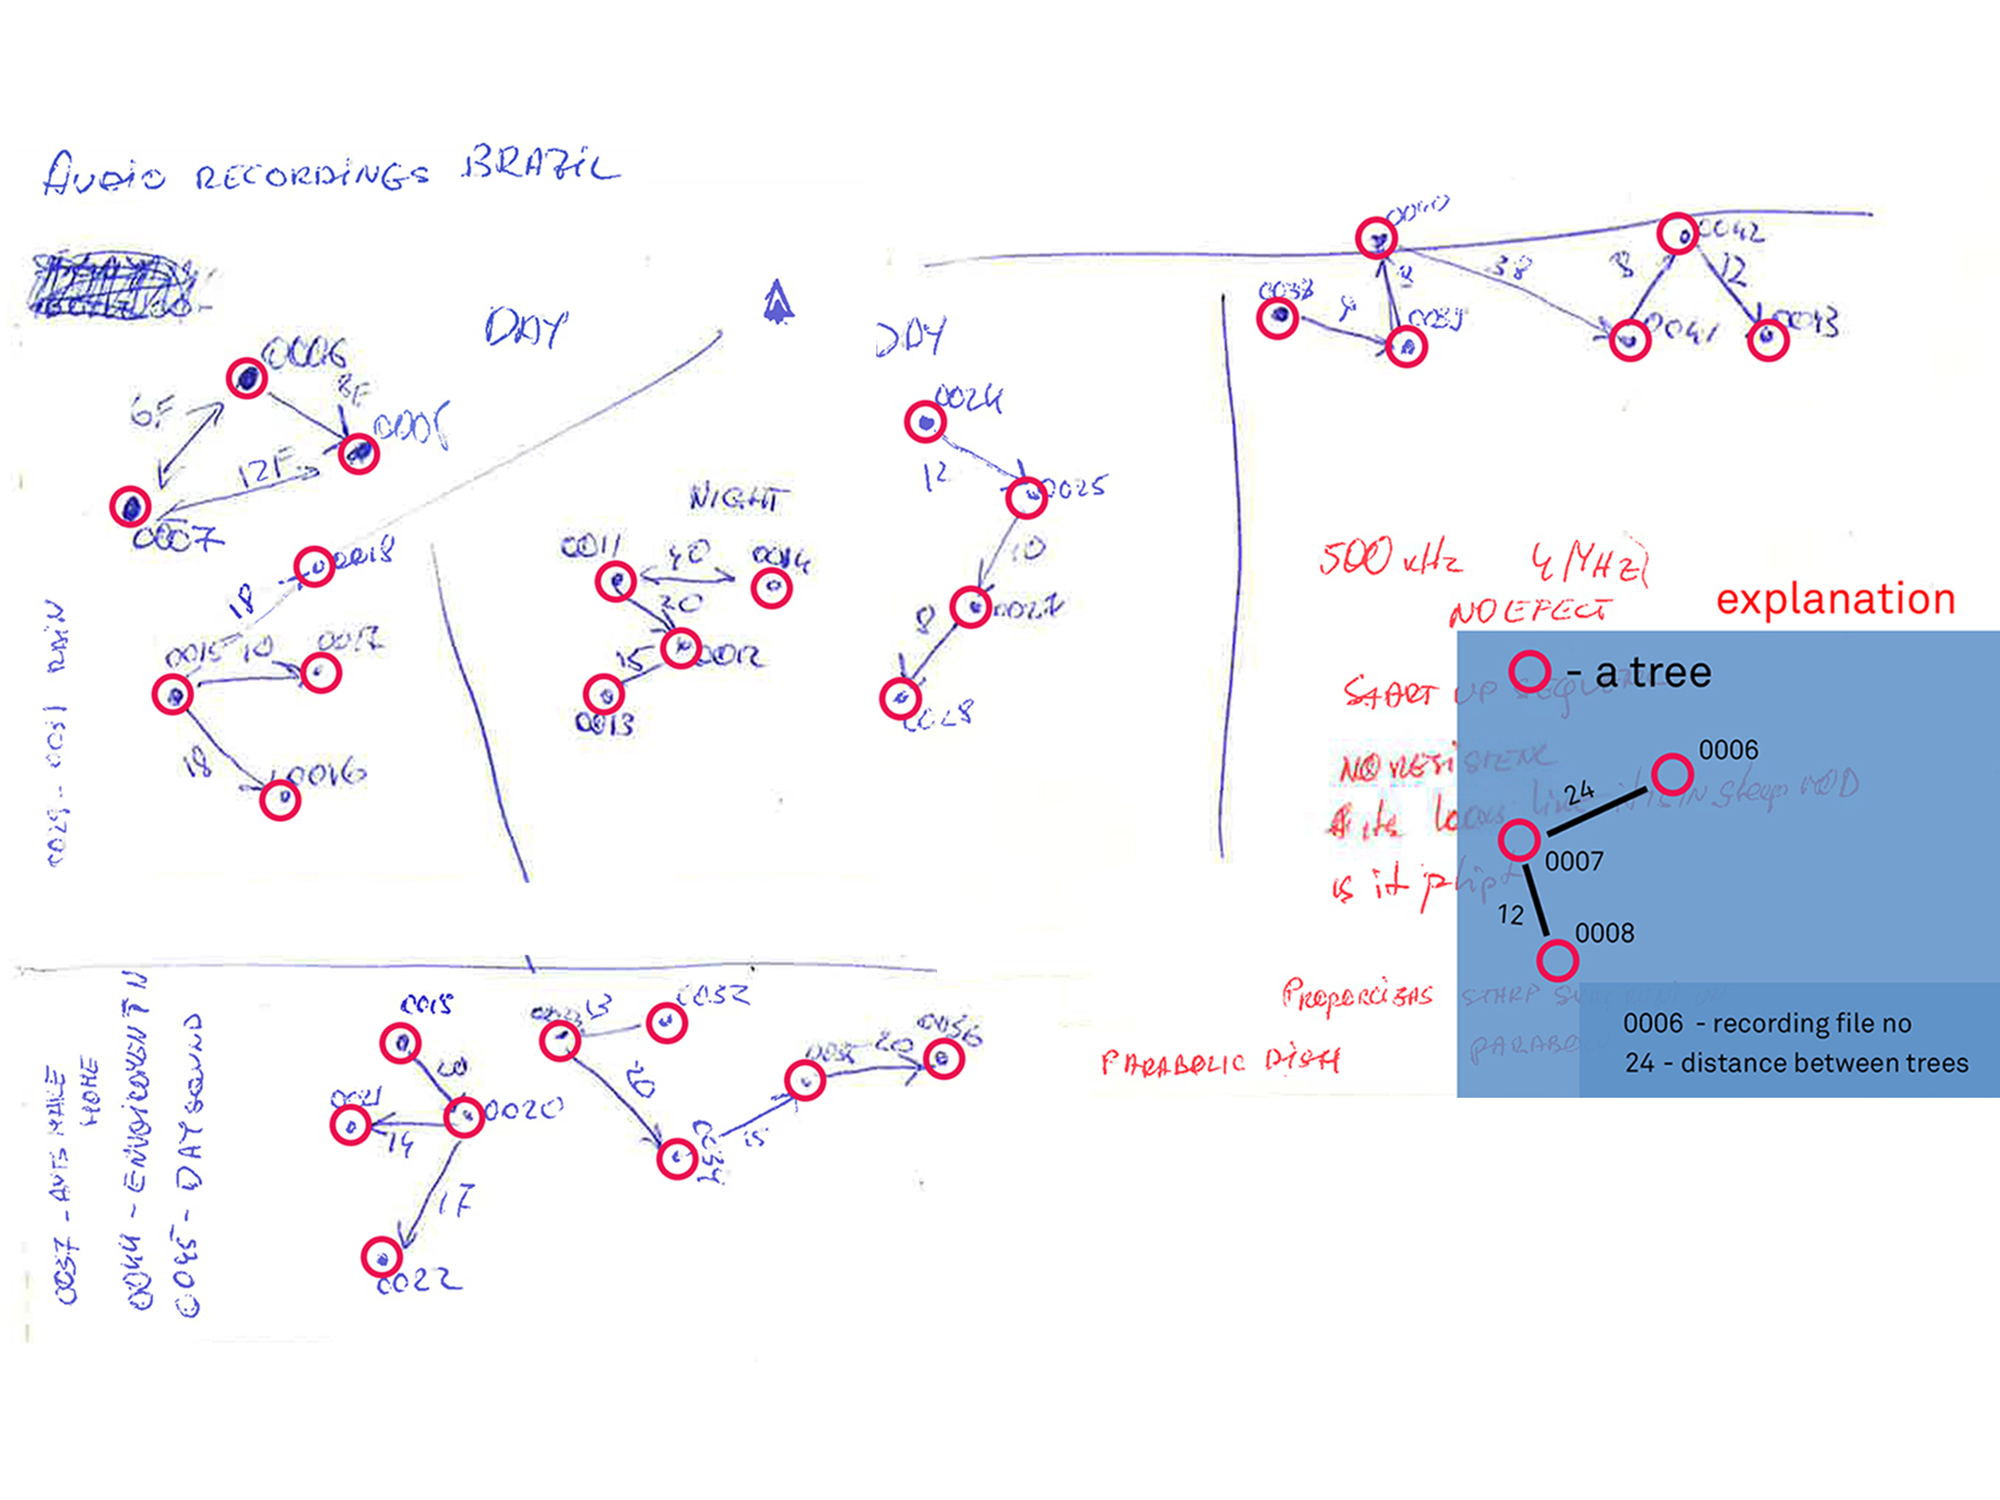 AUDIO RECORDINGS BRAZIL
DAY
0006
8F
6F
0005
12F
0007
0018
18
0015
10
0017
18
0016
0029 - 0031 RAIN
NIGHT
0011
40
0014
20
0012
15
0013
DAY
0024
12
0025
10
0027
8
0028
0040
38
0042
8
12
0038
9
0039
0041
0043
500 kHz 4 MHz
NO EFECT
START UP
PARABOLIC DISH
explanation
- a tree
0006
24
0007
12
0008
0006 - recording file no
24 - distance between trees
0037 -
HOME
0044 -
0045 - DAY SOUND
0021
14
0020
17
0022
13
0032
20
0034
15
20
0036